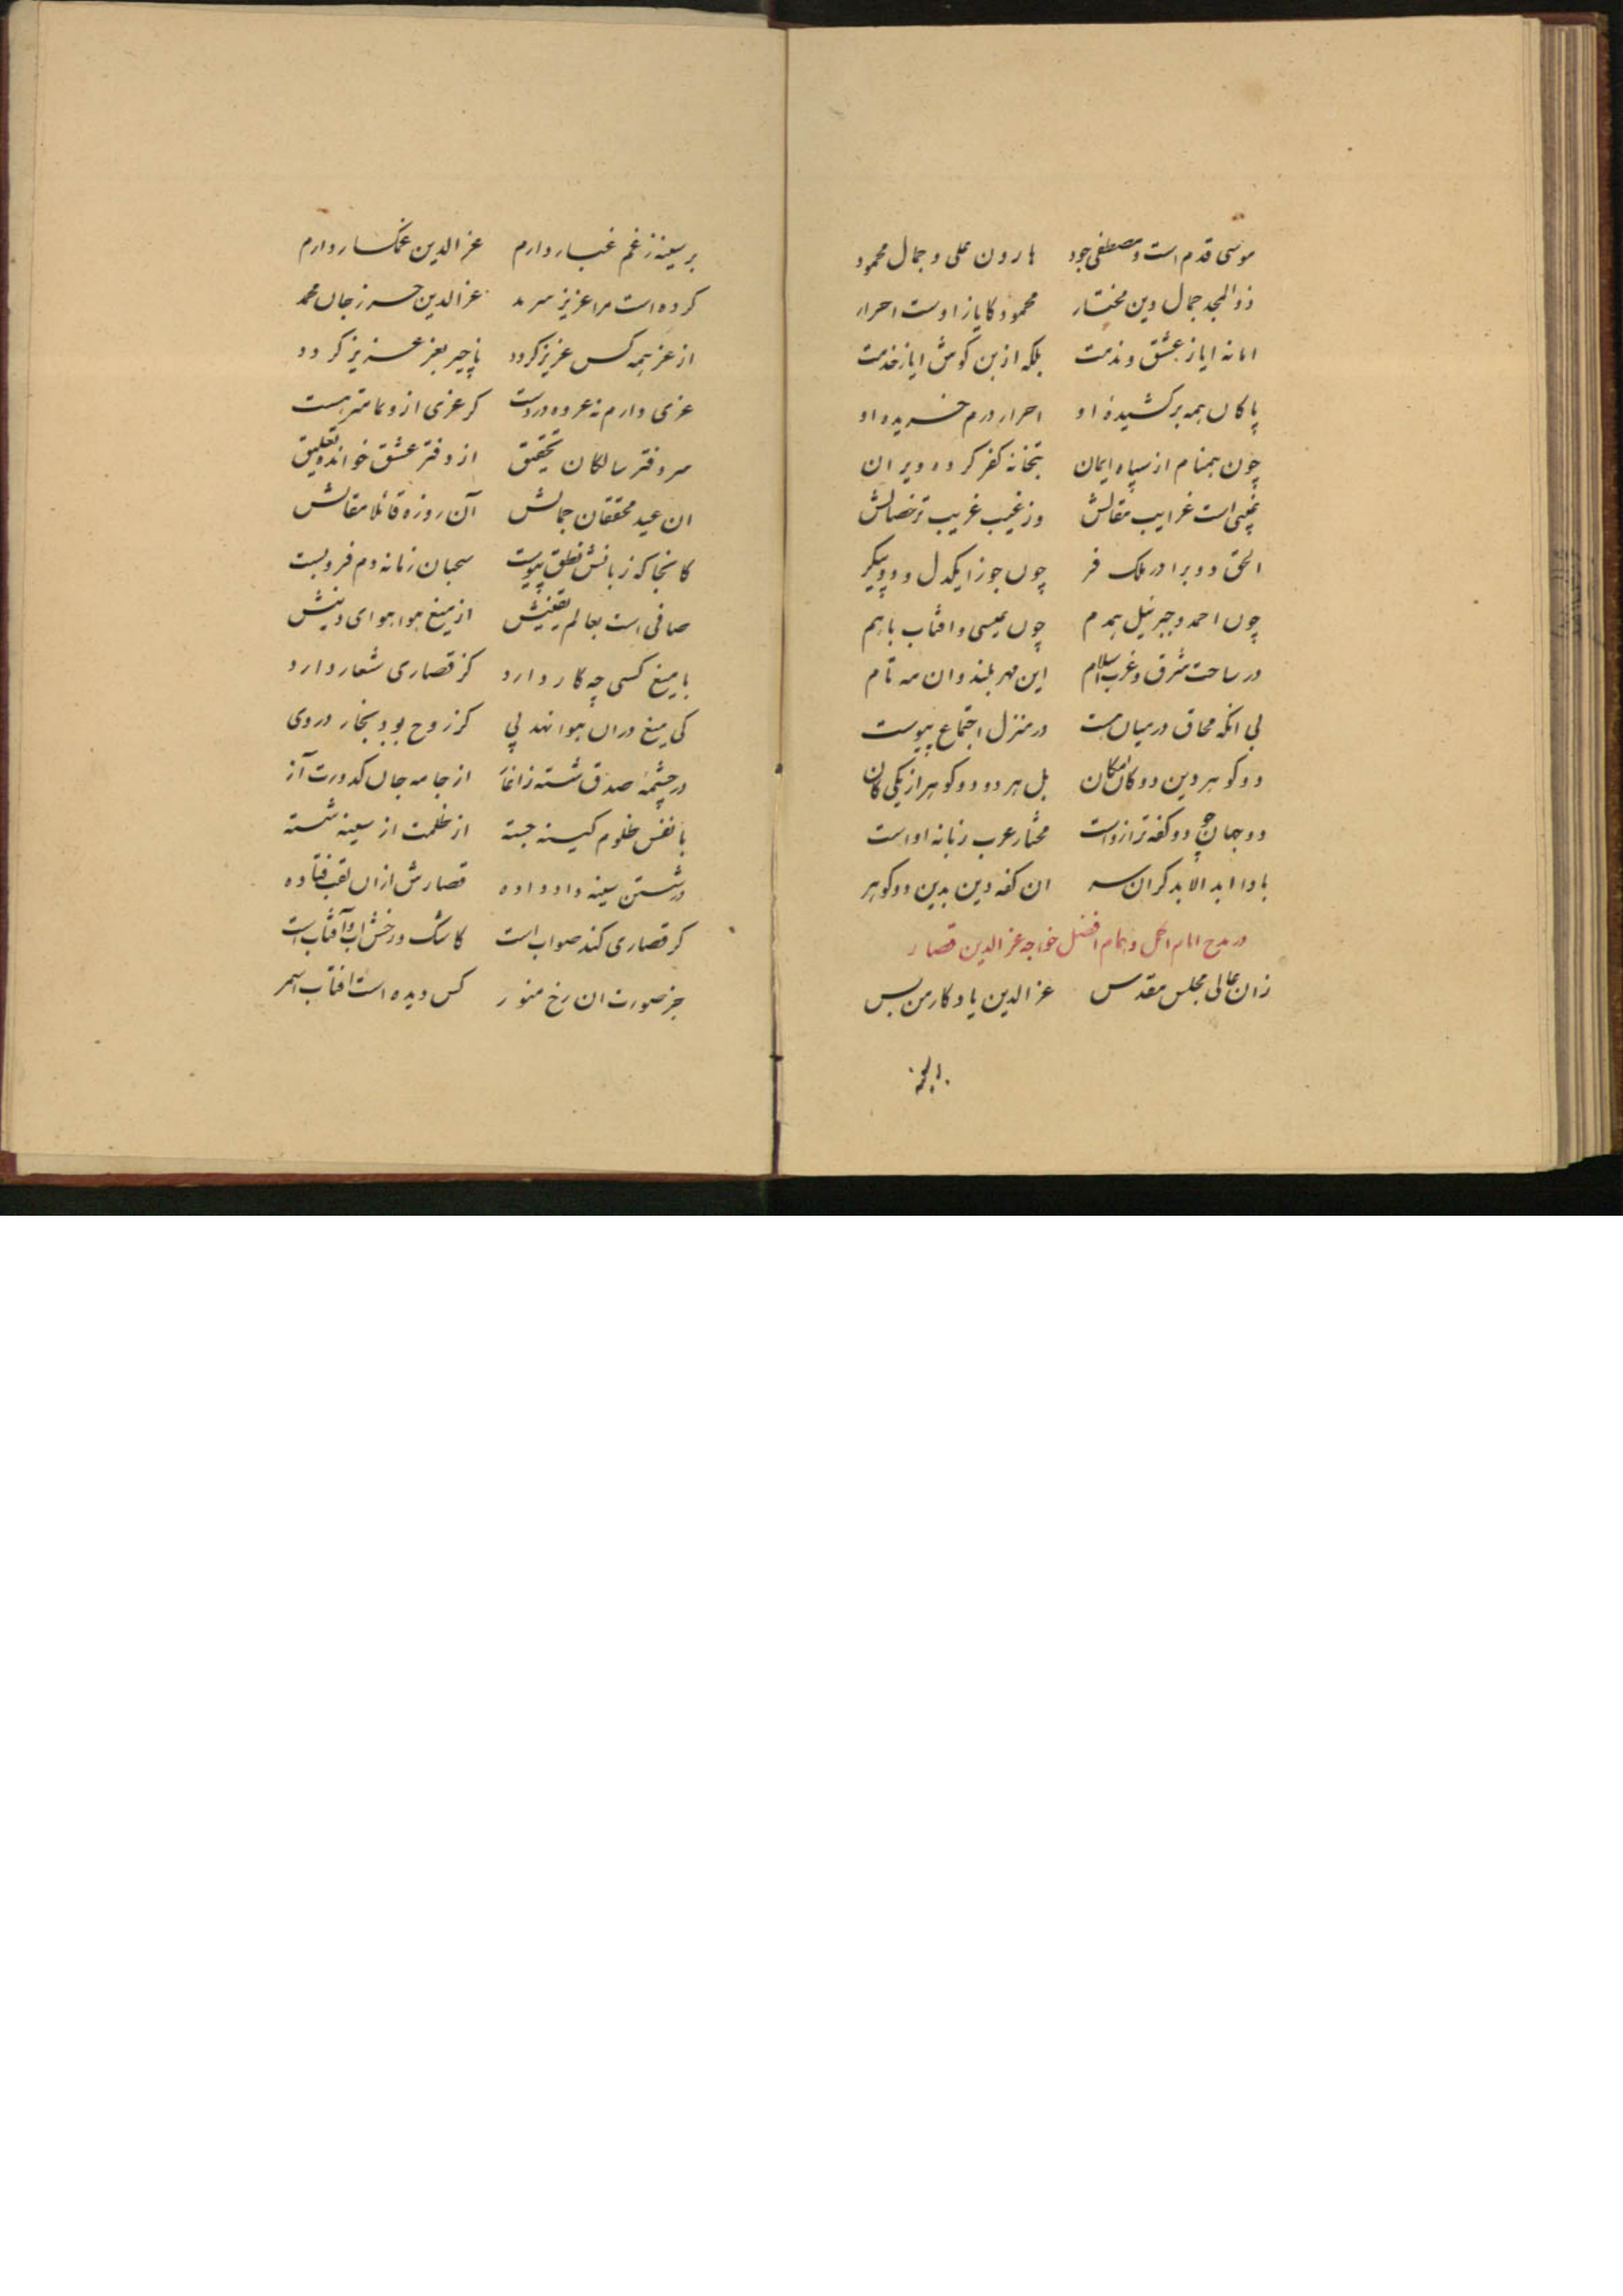 موسی قدم است و مصطفی جود هارون علی و جمال محمود
ذوالمجد جمال دین مختار محمود کایاز اوست احرار
اما نه ایاز عشق و ندمت بلکه از بن کوش ایاز خدمت
پاکان همه برکشیدهٔ او احرار درم خریده او
چون همنام از سپاه ایمان بتخانه کفر کرده ویران
غیبی است غرایب مقالش وز غیب غریب تر خصالش
الحق دو برادر ملک فر چون جوزا یکدل و دو پیکر
چون احمد و جبرئیل همدم چون عیسی و افتاب باهم
در ساحت شرق و غرب اسلام این مهر بلند وان مه تام
بی انکه محاق در میان هست در منزل اجتماع پیوست
دو کوهر دین دو کان امکان بل هر دو دو کوهر از یکی کان
دو جهان چو دو کفه ترازو است مختار عرب زبانه او است
بادا ابد الابد کران سر ان کفه دین بدین دو کوهر
در مدح امام اجل و همام افضل خواجه عز الدین قصار
زان عالی مجلس مقدس عز الدین یادکار من بس
بر سینه ز غم غبار دارم عز الدین غمکسار دارم
کرده است مرا عزیز سرمد عز الدین جان محمد
از عز همه کس عزیز کردد ناچیز بعز عزیز کردد
عزی دارم نه عروه در دست کر عزی از و تمامتر هست
سر دفتر سالکان تحقیق از دفتر عشق خوانده تعلیق
ان عید محققان جمالش آن روزه مقالش
کانجا که زبانش نطق پیوست سحبان زمانه دم فرو بست
صافی است بعالم یقینش از میغ هوا هوای دینش
با میغ کسی چه کار دارد کز قصاری شعار دارد
کی میغ دران هوا نهد پی کز روح بود بخار در وی
در چشمهٔ صدق شسته ز اغاز از جامه جان کدورت آز
با نفس ظلوم کینه جسته از ظلمت از سینه شسته
در شستن سینه داد داده قصارش ازان لقب فتاده
کر قصاری کند صواب است کاشک و رخش اب و آفتاب است
جز صورت ان رخ منور کس دیده است افتاب اسمر